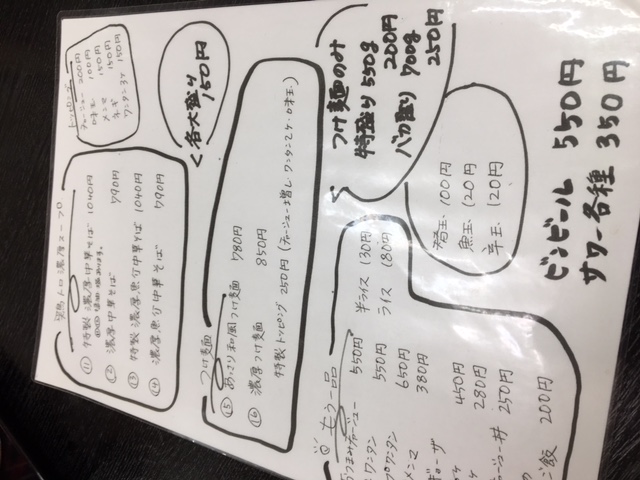 鶏トロ濃厚スープ
⑪ 特製濃厚中華そば 1040円
⑫ 濃厚中華そば 790円
⑬ 特製濃厚魚介中華そば 1040円
⑭ 濃厚魚介中華そば 790円
トッピング
チャーシュー 200円
味玉 100円
メンマ 150円
ネギ 150円
ワンタン3ケ 150円
各大盛り
150円
つけ麺
⑮ あっさり和風つけ麺 780円
⑯ 濃厚つけ麺 850円
特製トッピング 250円(チャーシュー増し・ワンタン2ケ・味玉)
つけ麺のみ
特盛り 550g
200円
バカ盛り 700g
250円
もう一品
おつまみチャーシュー 550円
ワンタン 550円
ワンタン 650円
メンマ 380円
ギョーザ 450円
280円
チャーシュー丼 250円
ご飯 200円
半ライス 130円
ライス 180円
替玉 100円
魚玉 120円
辛玉 120円
ビンビール 550円
サワー各種 350円